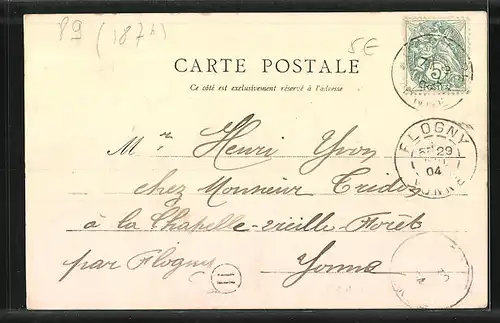 89 (187h)
5E
CARTE POSTALE
Ce côté est exclusivement réservé à l'adresse
5
FLOGNY
29
04
Mr. Henri Yvon
chez Monsieur Tridon
à la Chapelle-vieille-Forêt
par Flogny Yonne